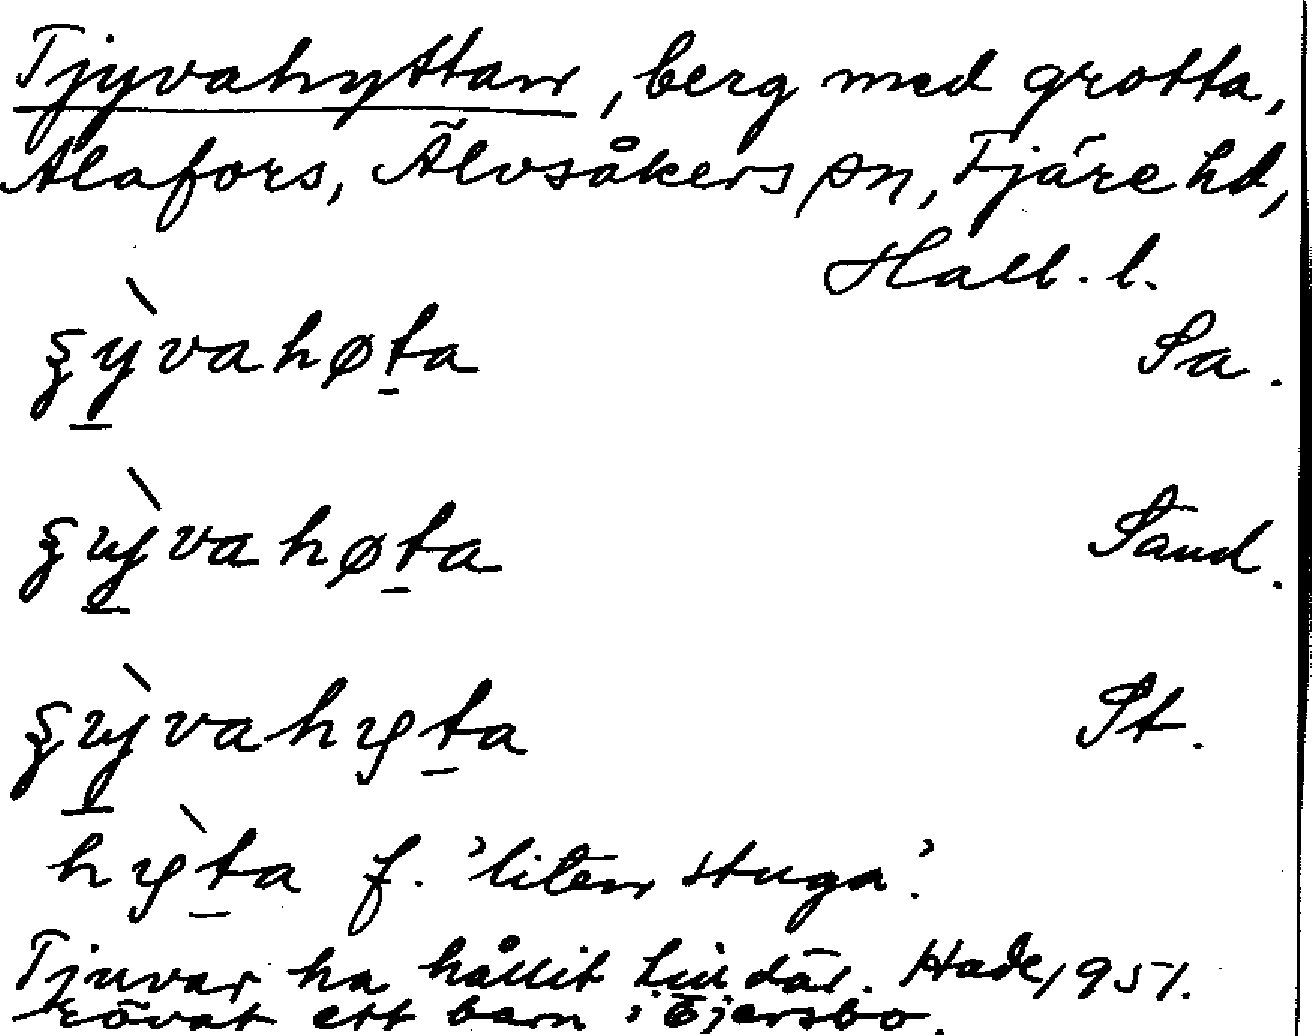 Tjyvahyttan, berg med grotta,
Alafors, Älvsåkers sn, Fjäre hd,
Hall. l.
vahøta Sa.
vahøta Sand.
St.
f. 'liten stuga'.
Tjuvar ha hållit till där. Hade 1951.
rövat ett barn i Gjersbo.